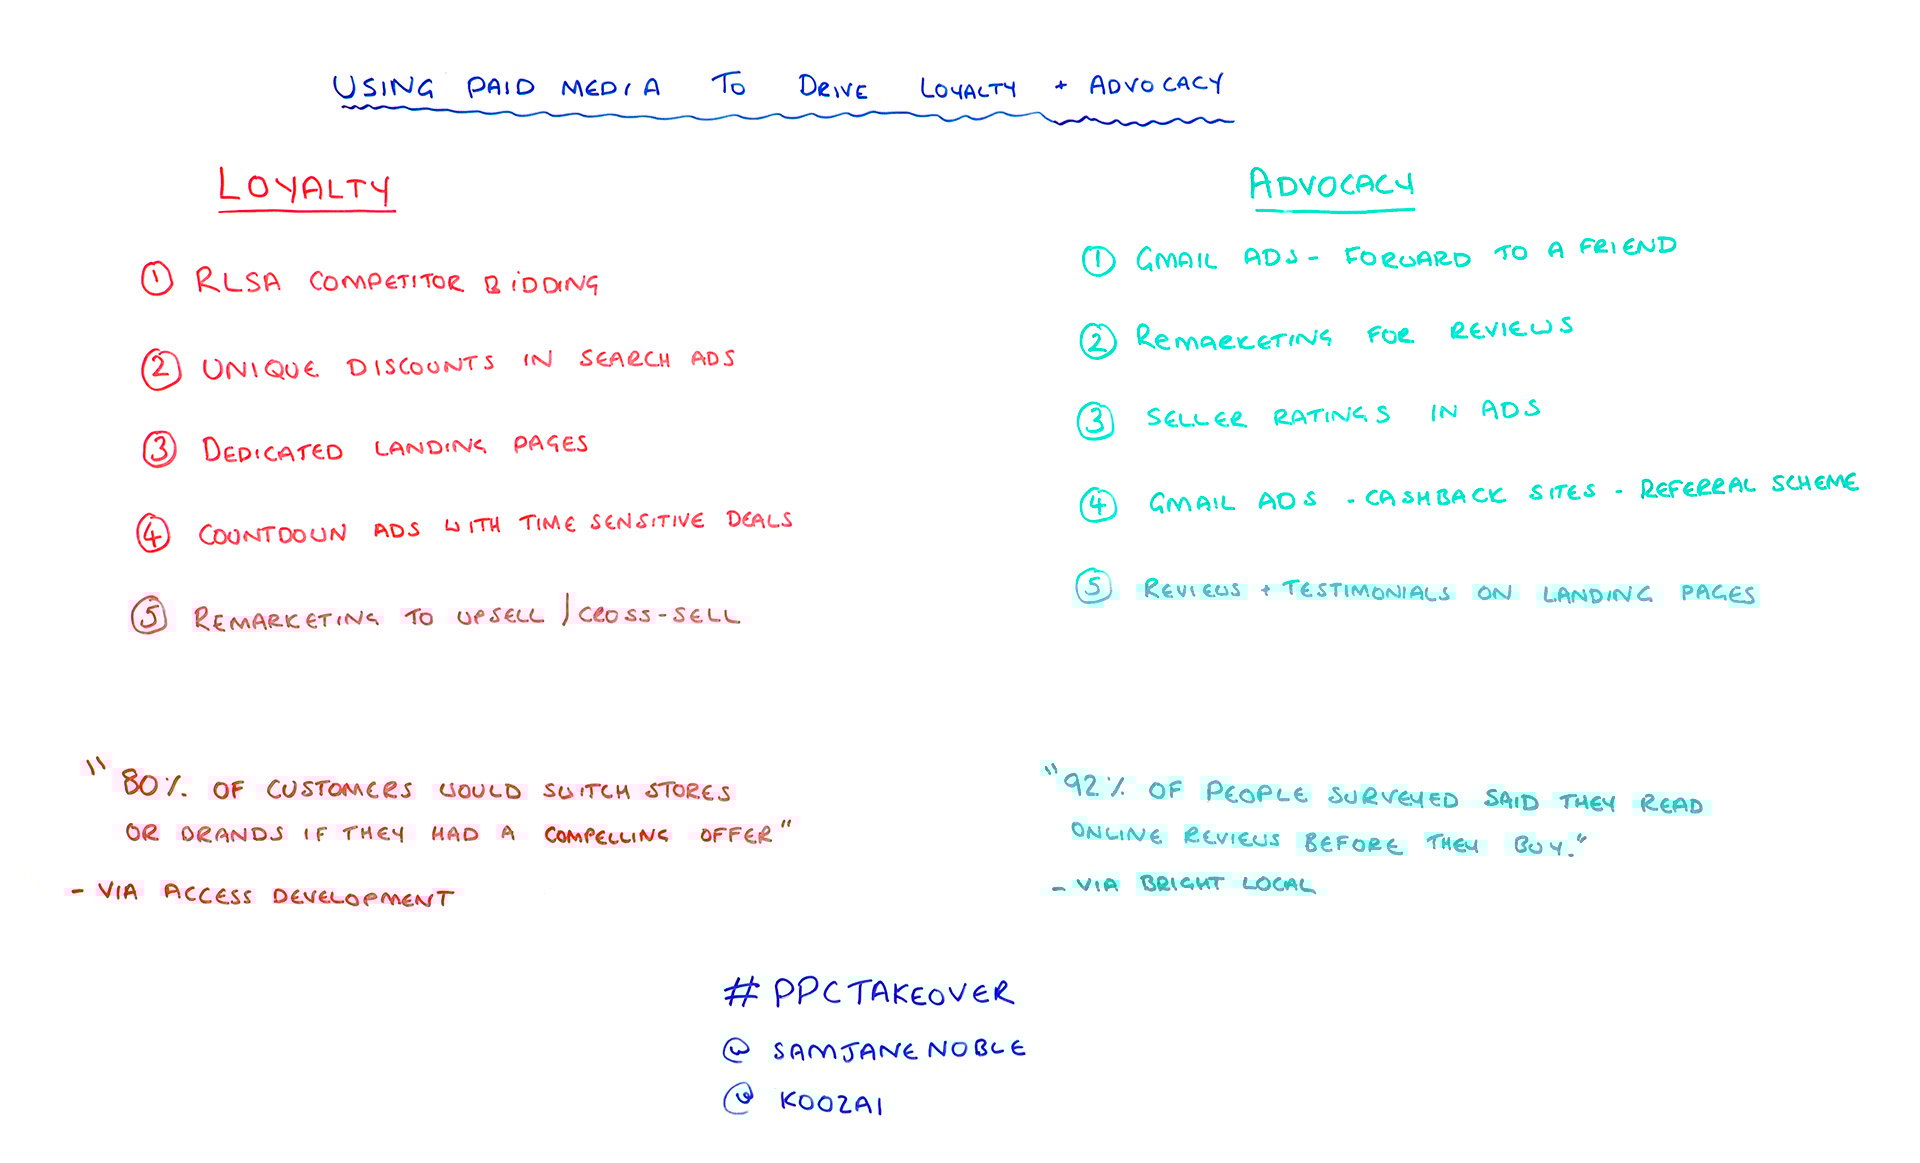 USING PAID MEDIA TO DRIVE LOYALTY + ADVOCACY
LOYALTY
① RLSA COMPETITOR BIDDING
② UNIQUE DISCOUNTS IN SEARCH ADS
③ DEDICATED LANDING PAGES
④ COUNTDOWN ADS WITH TIME SENSITIVE DEALS
⑤ REMARKETING TO UPSELL / CROSS-SELL
"80% OF CUSTOMERS WOULD SWITCH STORES
OR BRANDS IF THEY HAD A COMPELLING OFFER"
- VIA ACCESS DEVELOPMENT
ADVOCACY
① GMAIL ADS - FORWARD TO A FRIEND
② REMARKETING FOR REVIEWS
③ SELLER RATINGS IN ADS
④ GMAIL ADS - CASHBACK SITES - REFERRAL SCHEME
⑤ REVIEWS + TESTIMONIALS ON LANDING PAGES
"92% OF PEOPLE SURVEYED SAID THEY READ
ONLINE REVIEWS BEFORE THEY BUY."
- VIA BRIGHT LOCAL
# PPCTAKEOVER
@ SAMJANENOBLE
@ KOOZAI